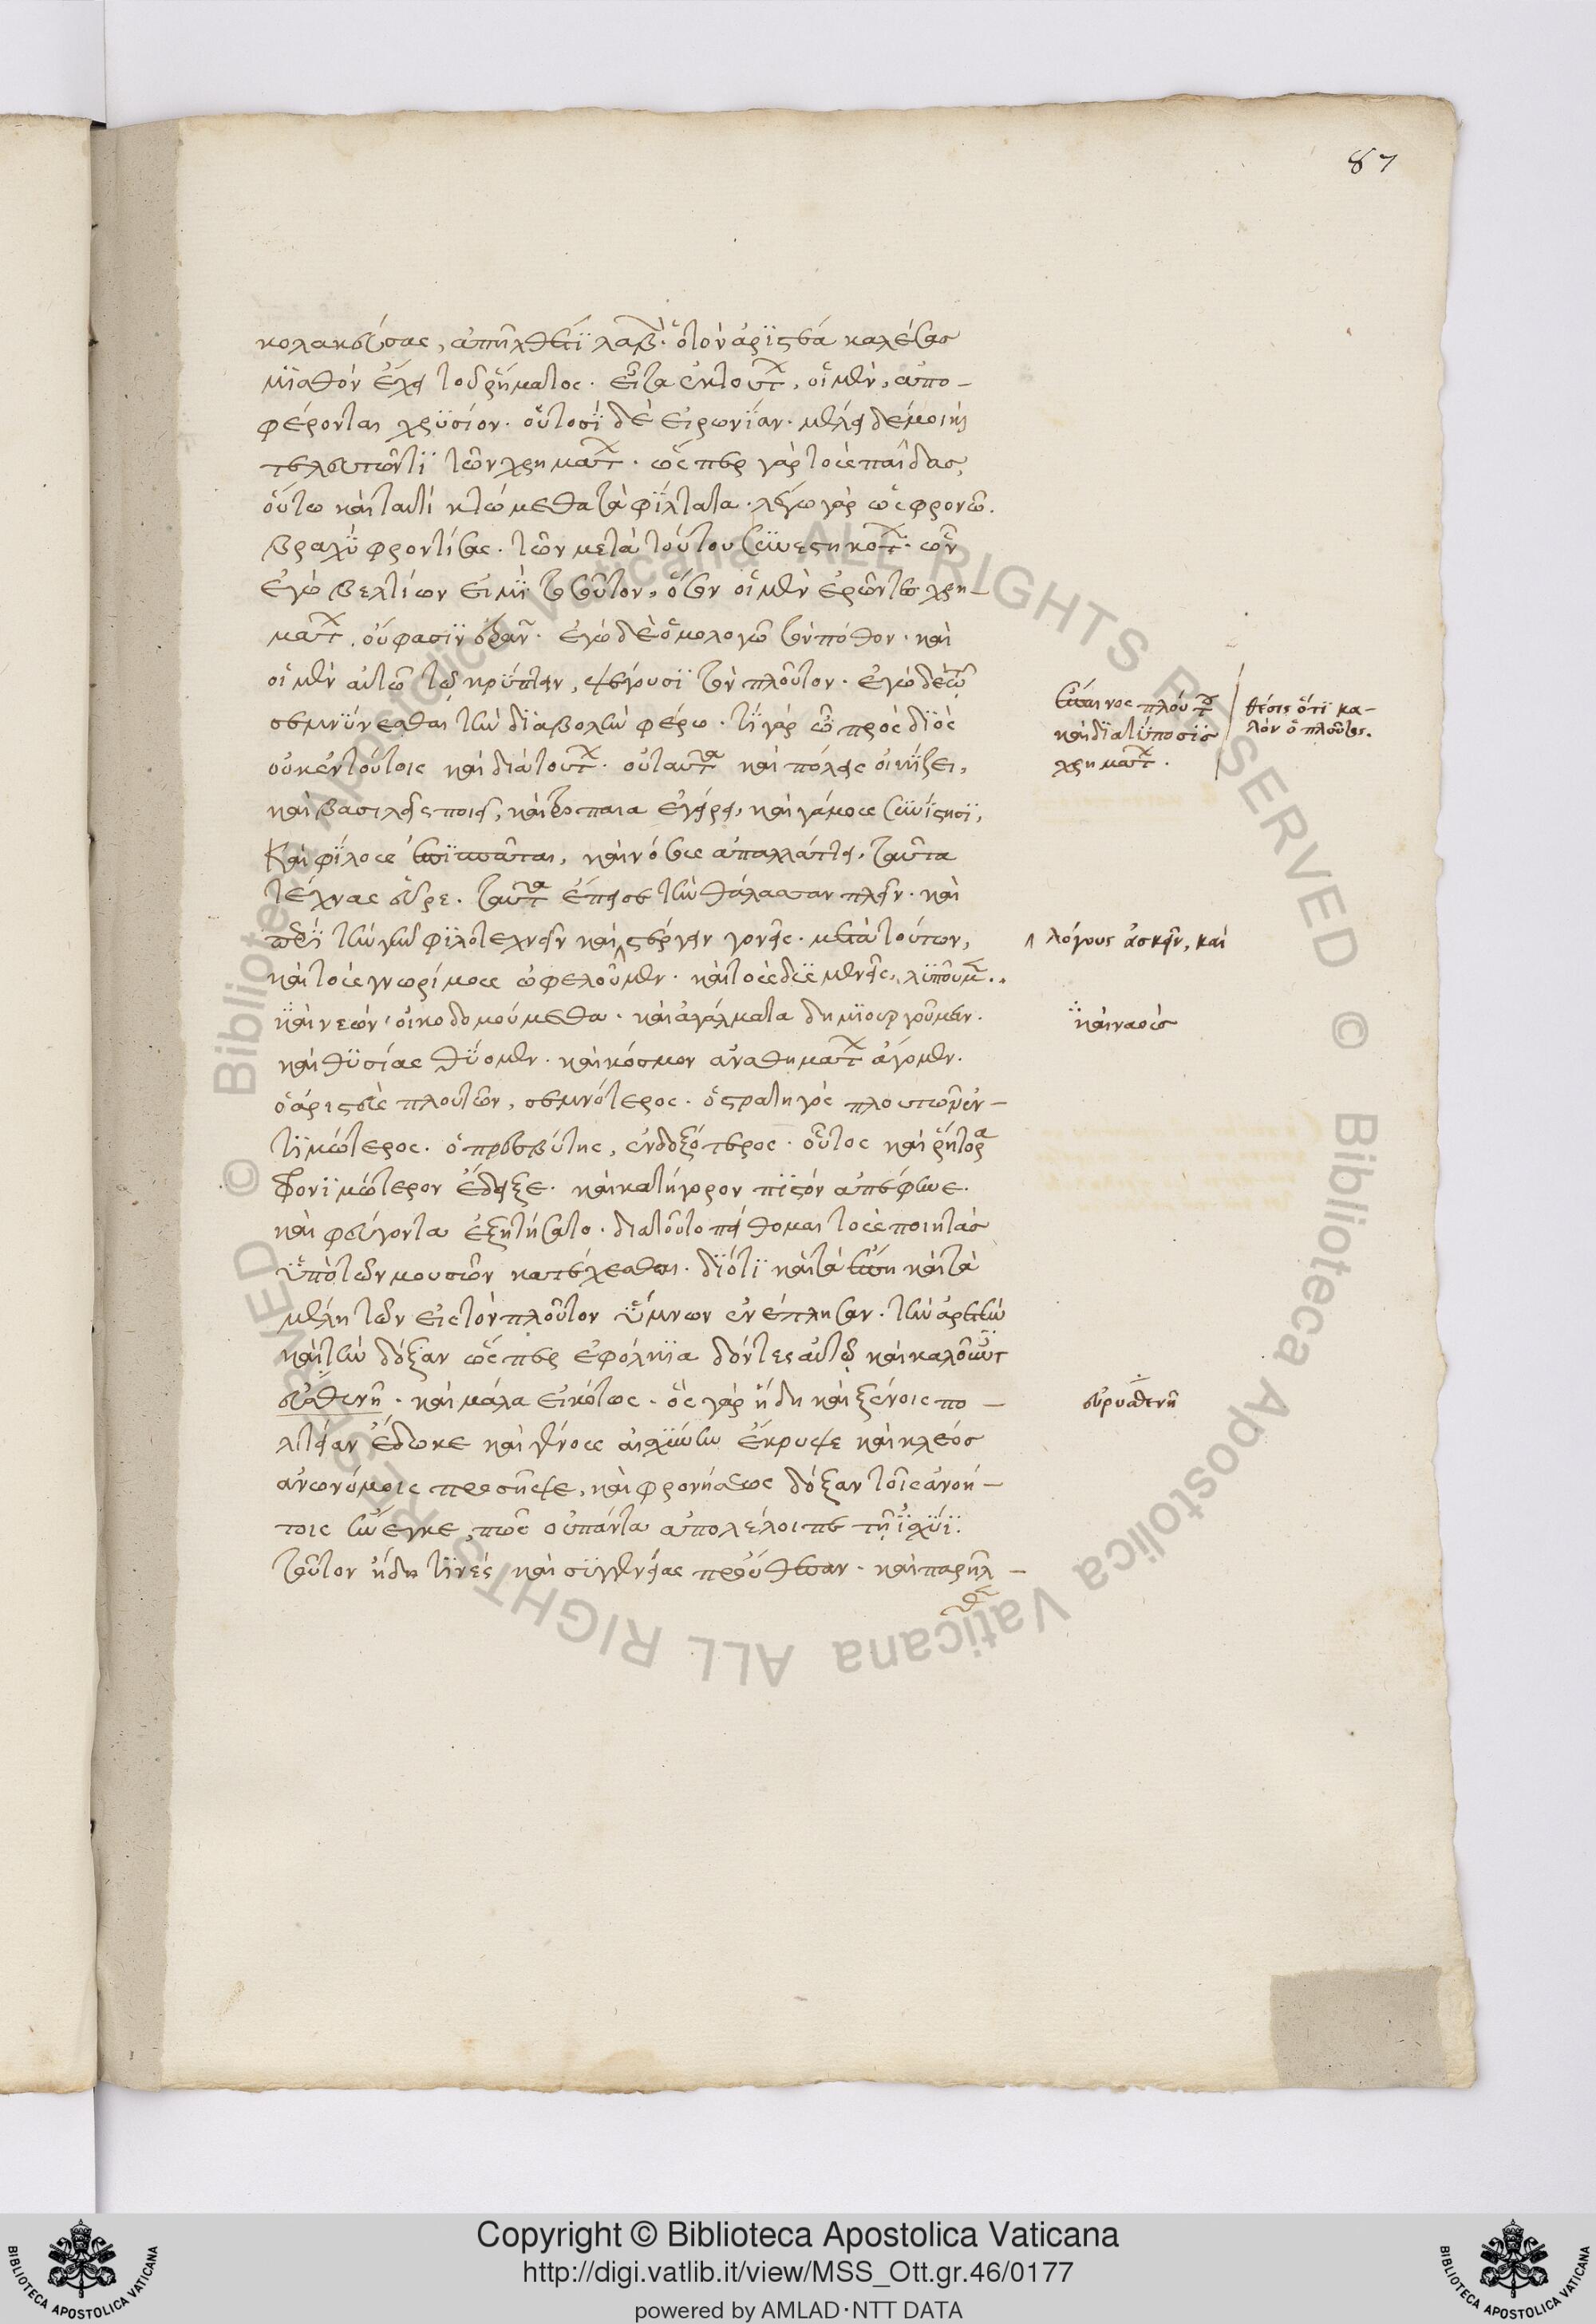 87
κολακεύσας, ἀπῆλθέ τι λαβών. ὁ τὸν ἀριστέα καλέσας
μισθὸν ἔχει τοῦ ῥήματος. εἶτα ἐκ τούτων, οἱ μὲν, ἀπο-
φέρονται χρυσίον. οὑτοσὶ δὲ εἰρωνίαν. μέλει δέ μοι καὶ
τελευτῶντι τῶν χρημάτων. ὥσπερ γὰρ τοὺς παῖδας,
οὕτω καὶ ταυτὶ κτώμεθα τὰ φίλτατα. λέγω γὰρ ὡς φρονῶ.
βραχὺ φροντίσας. τῶν μετὰ τούτου συνεστηκότων. ὧν
ἐγὼ βελτίων εἰμὶ τοσοῦτον, ὅσον οἱ μὲν ἐρῶντες χρη-
μάτων, οὔ φασιν ἐρᾶν. ἐγὼ δὲ ὁμολογῶ τὸν πόθον. καὶ
οἱ μὲν αὐτῶ τῶ κρύπτειν, ψέγουσι τὸν πλοῦτον. ἐγὼ δὲ τῶ
σεμνύνεσθαι τὴν διαβολὴν φέρω. τί γὰρ ὦ πρὸς διὸς
οὐκ ἐν τούτοις καὶ διὰ τούτων. οὐ ταῦτα καὶ πόλεις οἰκίζει,
καὶ βασιλεῖς ποιεῖ, καὶ τρόπαια ἐγείρει, καὶ γάμους συνίστησι,
καὶ φίλους ἐπισπᾶται, καὶ νόσους ἀπαλλάττει, ταῦτα
τέχνας εὗρε. ταῦτα ἔπεισε τὴν θάλασσαν πλεῖν. καὶ
περὶ τὴν γῆν φιλοτεχνεῖν καὶ στέργειν γονεῖς. μετὰ τούτων,
καὶ τοὺς γνωρίμους ὠφελοῦμεν. καὶ τοὺς δυσμενεῖς, λυποῦμεν.
καὶ νεὼν οἰκοδομούμεθα. καὶ ἀγάλματα δημιουργοῦμεν.
καὶ θυσίας θύομεν. καὶ κόσμον ἀναθημάτων ἄγομεν.
ὁ ἀριστεὺς πλουτῶν, σεμνότερος. ὁ στρατηγὸς πλουτῶν ἐν-
τιμώτερος. ὁ πρεσβύτης, ἐνδοξότερος. οὗτος καὶ ῥήτορα
φρονιμώτερον ἔδειξε. καὶ κατήγορον πιστὸν ἀπέφηνε.
καὶ φεύγοντα ἐξητήσατο. διὰ τοῦτο πείθομαι τοὺς ποιητὰς
ὑπὸ τῶν μουσῶν κατέχεσθαι. διότι καὶ τὰ ἔπη καὶ τὰ
μέλη τῶν εἰς τὸν πλοῦτον ὕμνων ἐνέπλησαν. τὴν ἀρετὴν
καὶ τὴν δόξαν ὥσπερ ἐφόλκια δόντες αὐτῷ καὶ καλοῦντες
εὐσθενῆ. καὶ μάλα εἰκότως. ὃς γὰρ ἤδη καὶ ξένοις πο-
λιτείαν ἔδωκε καὶ γένους αἰσχύνην ἔκρυψε καὶ κλέος
ἀνωνύμοις προσῆψε, καὶ φρονήσεως δόξαν τοῖς ἀνοή-
τοις ἤνεγκε, πῶς οὐ πάντα ἀπολέλοιπε τῇ ἰσχύϊ.
τοῦτον ἤδη τινὲς καὶ συγγενείας προὔθεσαν. καὶ παρῆλ-
θε
ἔπαινος πλούτου
καὶ διατύπωσις
χρημάτων.
θέσις ὅτι κα-
λὸν ὁ πλοῦτος.
λόγους ἀσκεῖν, καὶ
καὶ ναοὺς
εὐρυσθενῆ
Copyright © Biblioteca Apostolica Vaticana
http://digi.vatlib.it/view/MSS_Ott.gr.46/0177
powered by AMLAD·NTT DATA
BIBLIOTECA APOSTOLICA VATICANA
BIBLIOTECA APOSTOLICA VATICANA
© Biblioteca Apostolica Vaticana ALL RIGHTS RESERVED © Biblioteca Apostolica Vaticana ALL RIGHTS RESERVED